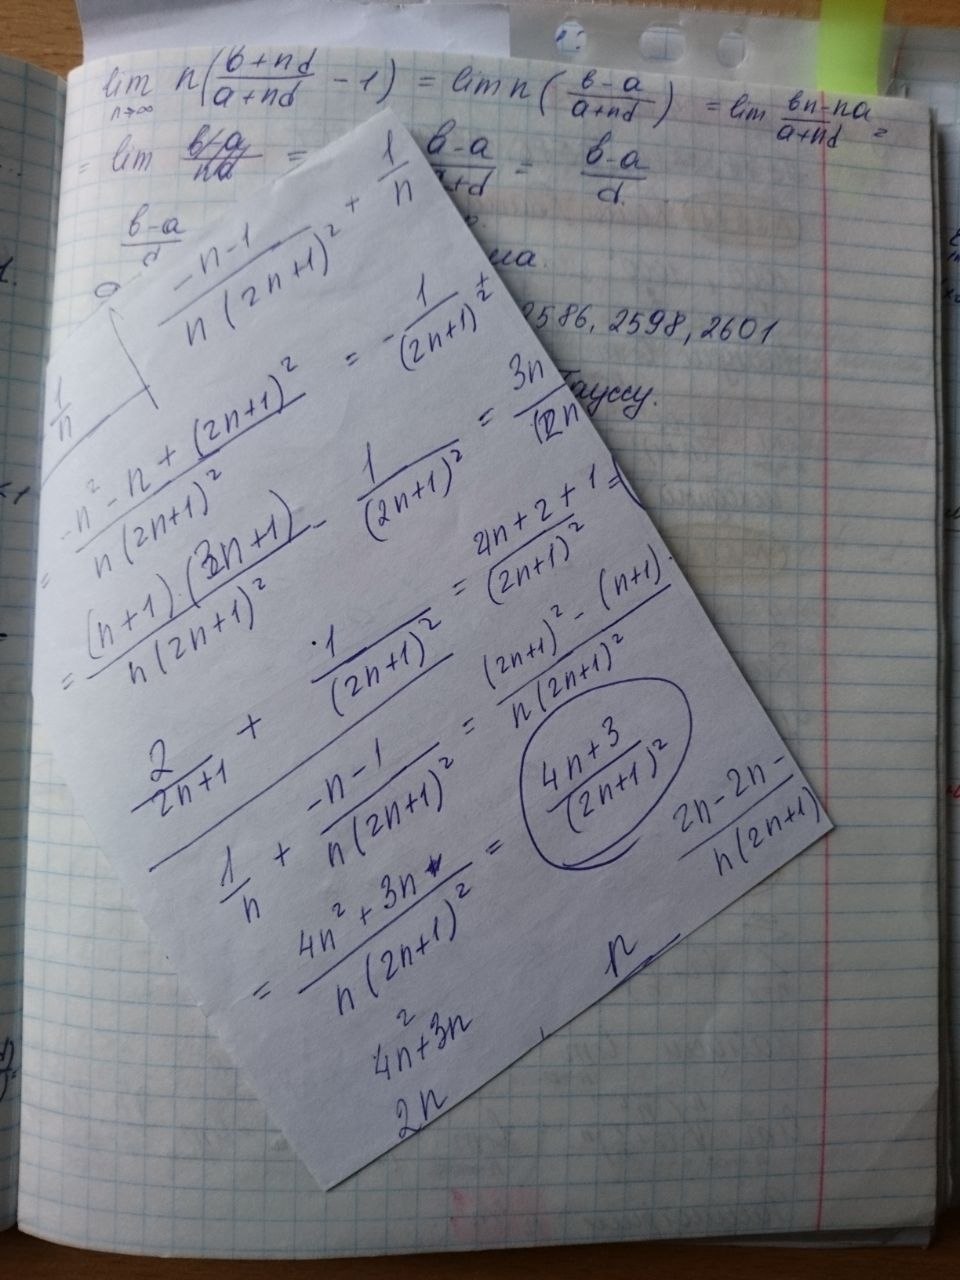 lim n→∞ n((в+nd)/(a+nd) - 1) = lim n((в-a)/(a+nd)) = lim (вn-na)/(a+nd) =
= lim = (в-a)/ +d = (в-a)/d
(в-a)/d
2586, 2598, 2601
Гауссу.
(-n-1)/(n(2n+1)²) + 1/n
1/n
(-n²-n+(2n+1)²)/(n(2n+1)²) = -1/(2n+1)² +
= ((n+1)·(3n+1))/(n(2n+1)²) - 1/(2n+1)² = 3n/(2n
2/(2n+1) + 1/(2n+1)² = (4n+2+1)/(2n+1)² =
1/n + (-n-1)/(n(2n+1)²) = ((2n+1)²-(n+1))/(n(2n+1)²)
= (4n²+3n)/(n(2n+1)²) = (4n+3)/(2n+1)²
(2n-2n-)/(n(2n+1)
4n²+3n
n
2n